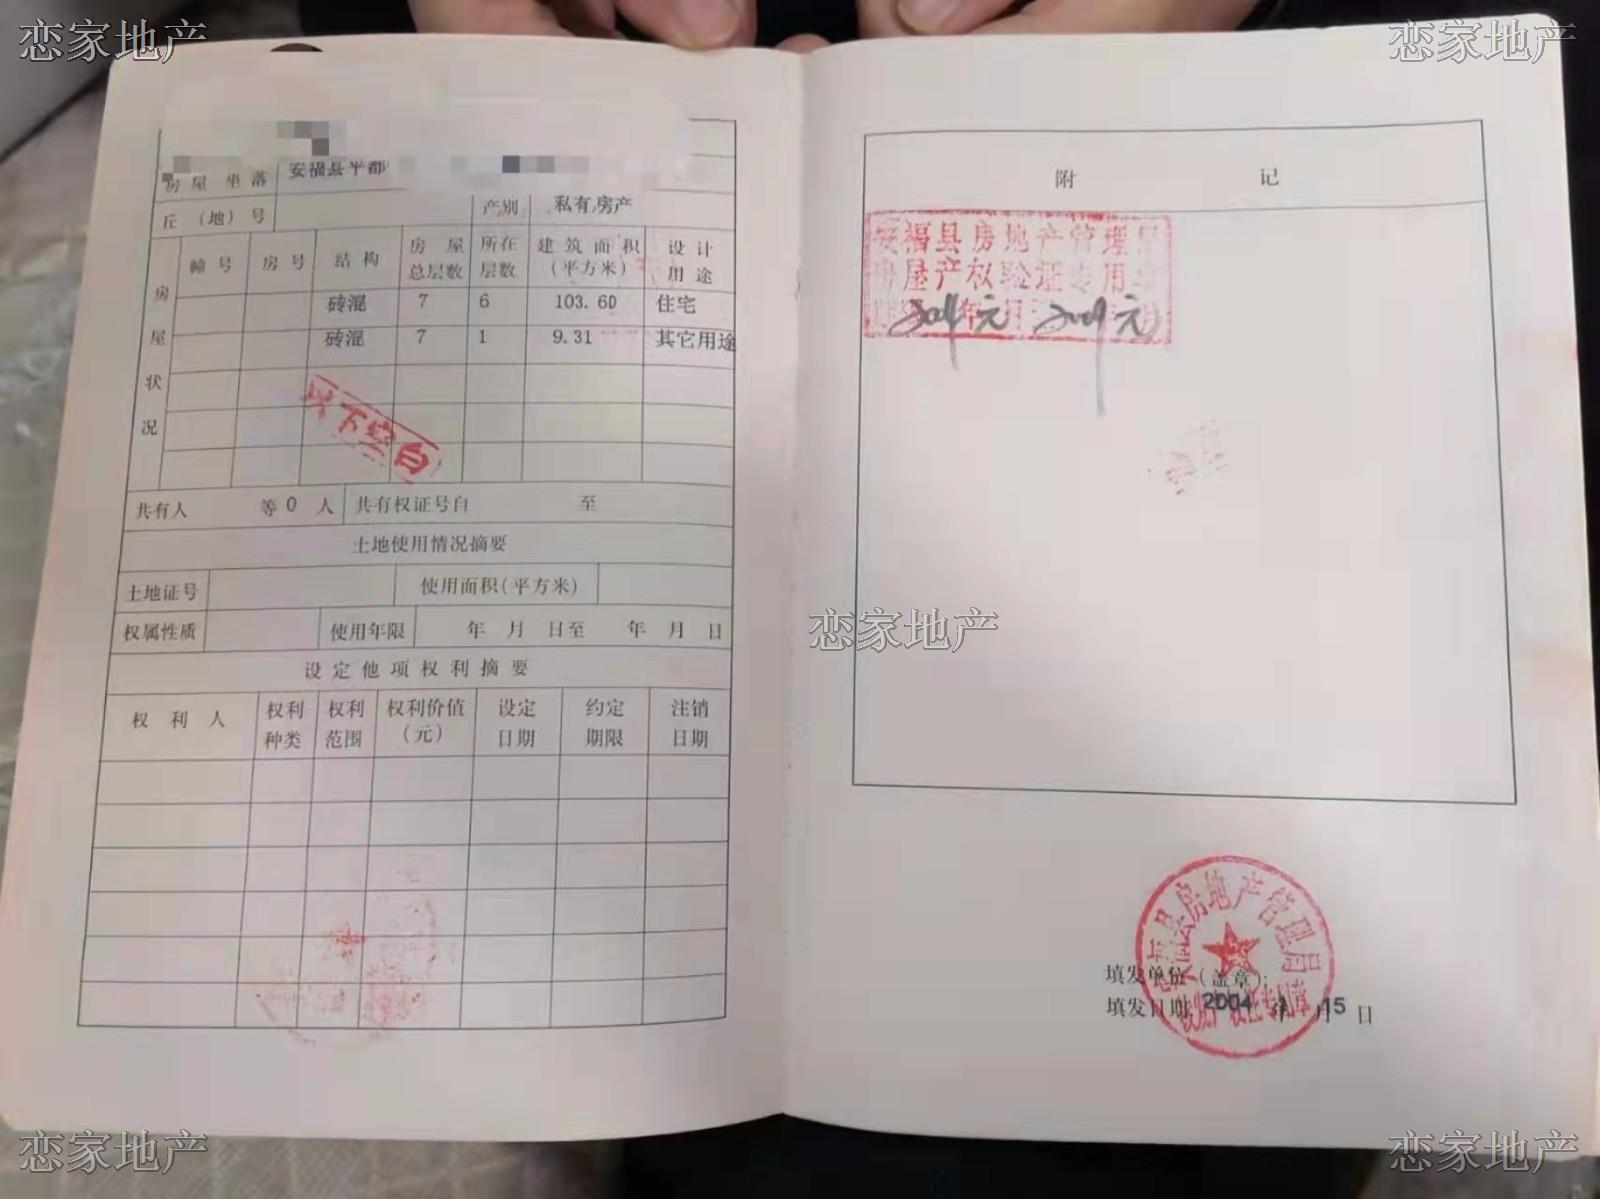 恋家地产
恋家地产
房屋坐落 安福县平都
丘（地）号 产别 私有房产
房屋状况
幢号 房号 结构 房屋总层数 所在层数 建筑面积（平方米） 设计用途
砖混 7 6 103.60 住宅
砖混 7 1 9.31 其它用途
以下空白
共有人 等0人 共有权证号自 至
土地使用情况摘要
土地证号 使用面积(平方米)
权属性质 使用年限 年 月 日至 年 月 日
设定他项权利摘要
权利人 权利种类 权利范围 权利价值（元） 设定日期 约定期限 注销日期
附 记
安福县房地产管理局
房屋产权验证专用章
恋家地产
安福县房地产管理局
填发单位（盖章）：
填发日期 2004 年 月 15 日
恋家地产
恋家地产